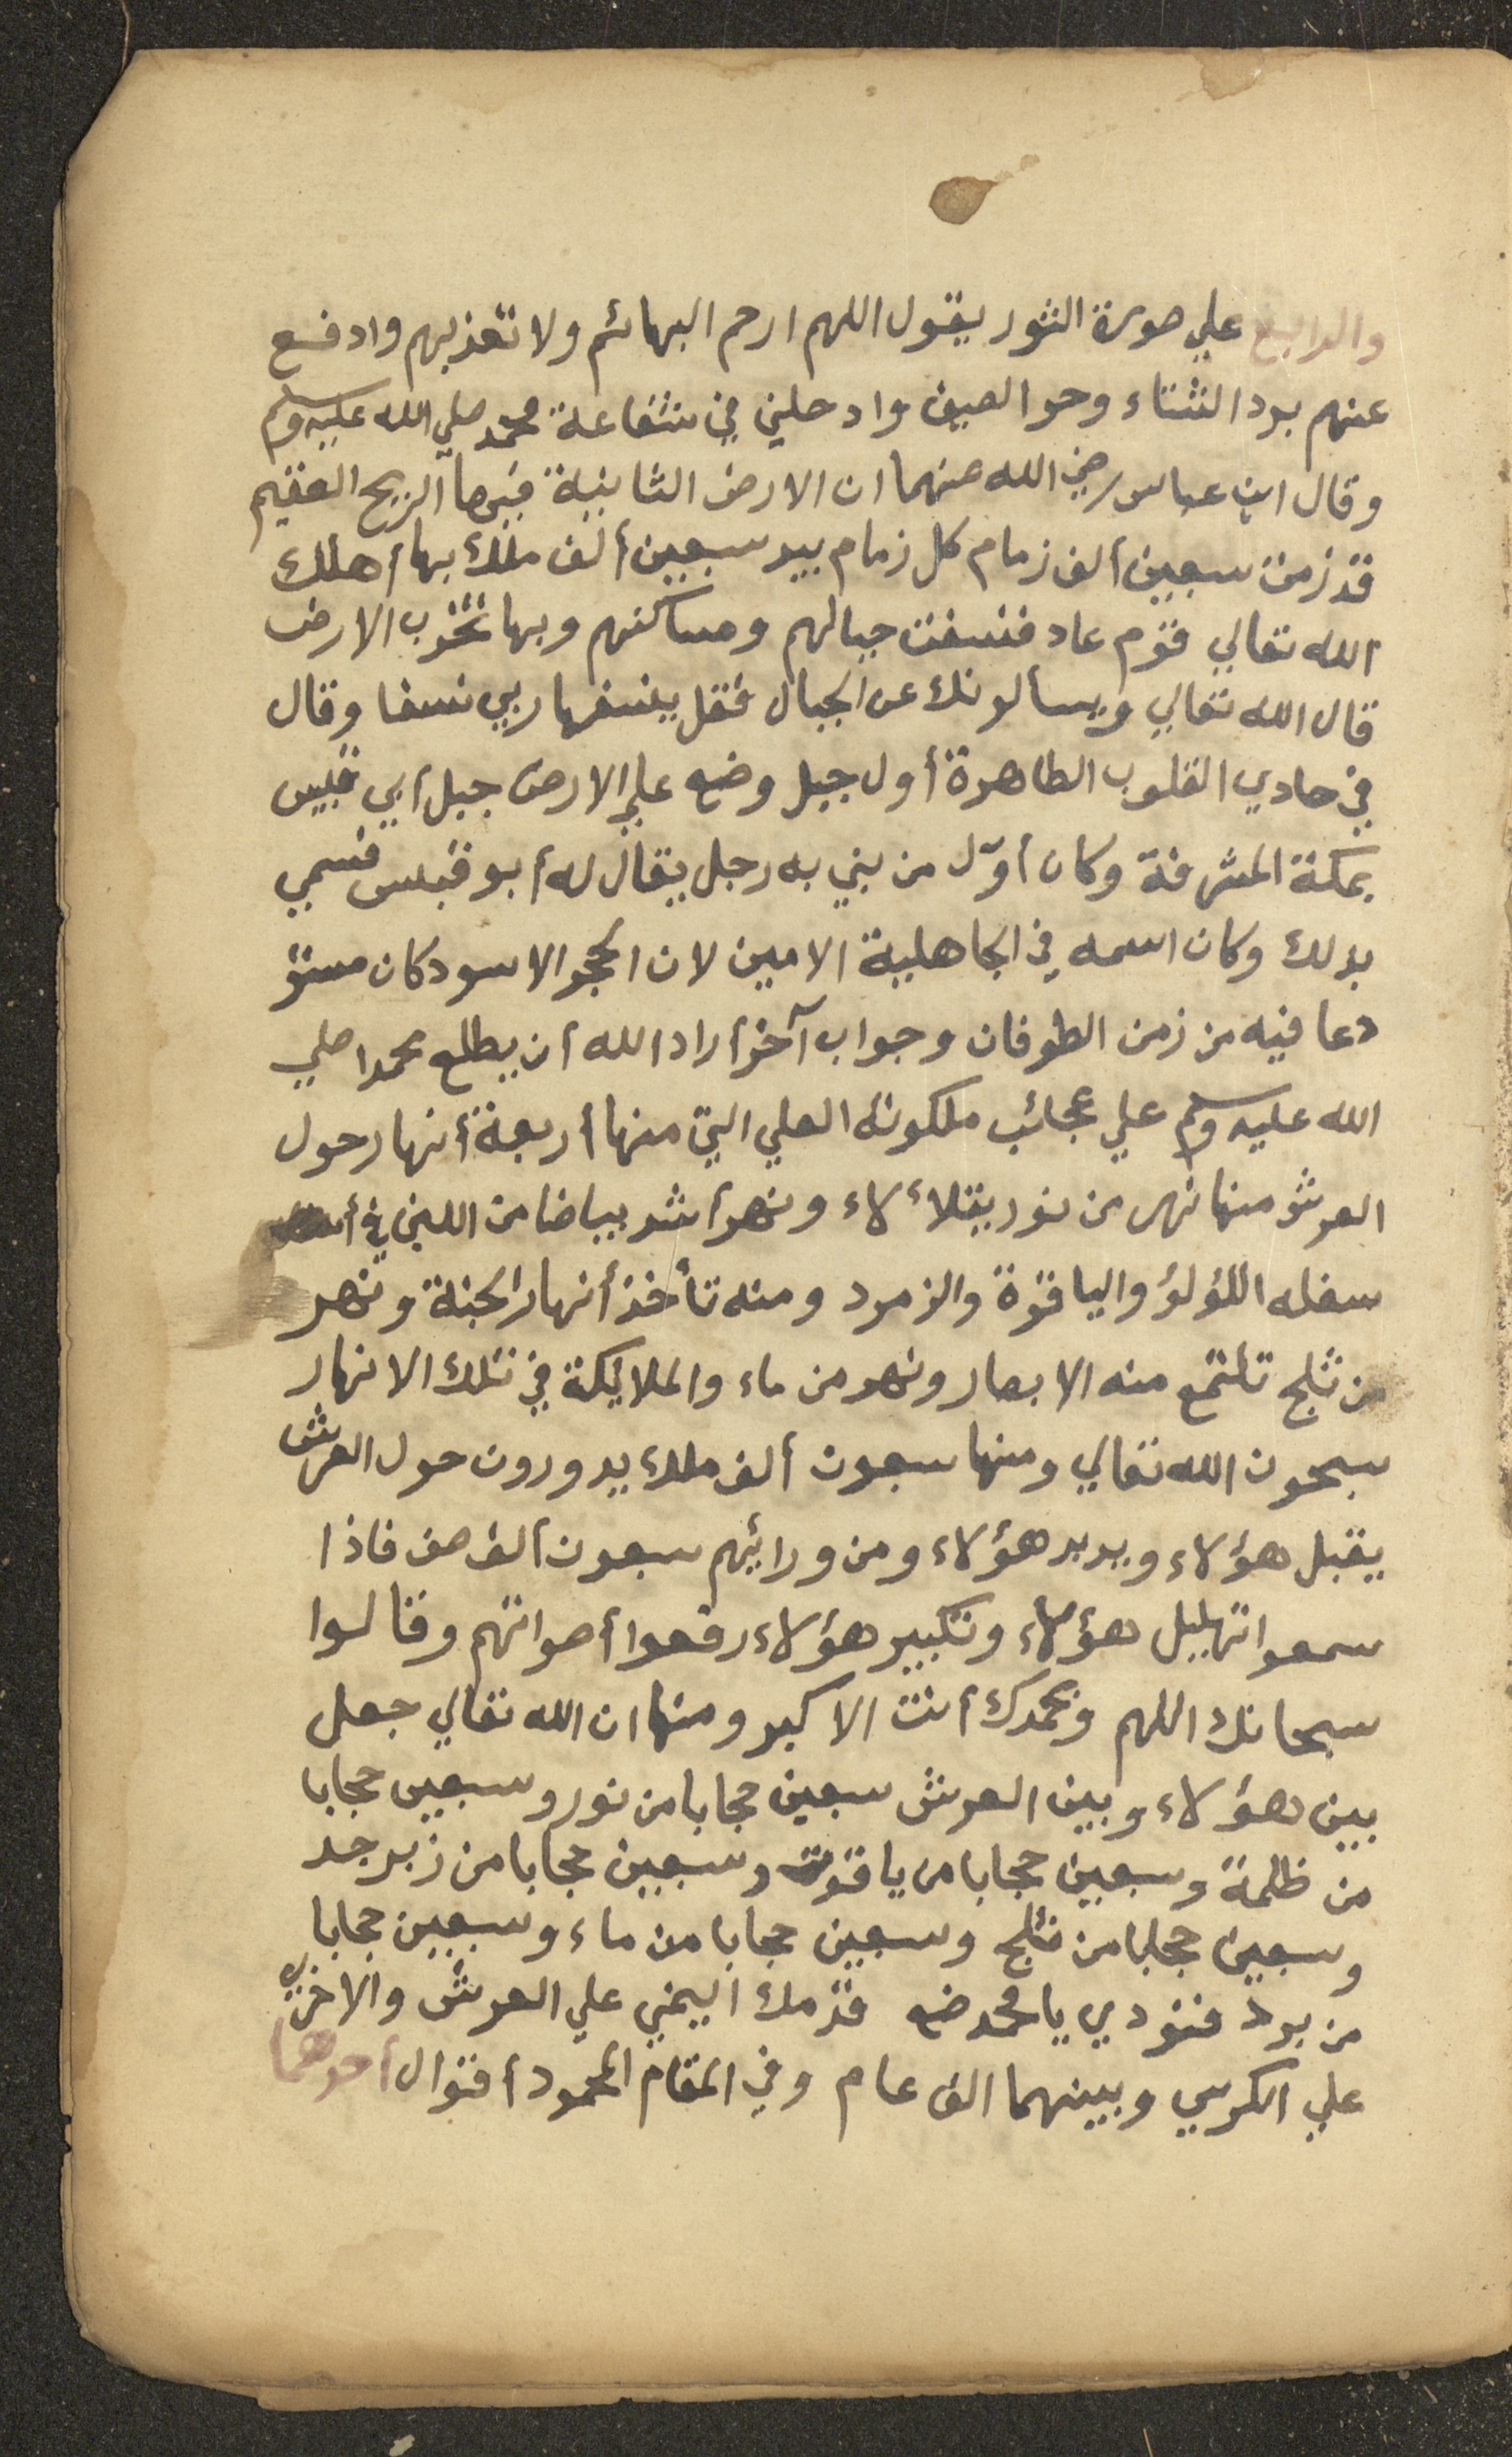 والرابع علي صورة الثور يقول اللهم ارحم البهائم ولا تعذبهم وادفع
عنهم برد الشتاء وحر الصيف وادخلني في شفاعة محمد صلي الله عليه وسلم
وقال ابن عباس رضي الله عنهما ان الارض الثانية فيها الريح العقيم
قد زمت سبعين ألف زمام كل زمام بيد سبعين ألف ملك بها أهلك
الله تعالي قوم عاد فنسفت جبالهم ومساكنهم وبها تخرب الارض
قال الله تعالي ويسألونك عن الجبال فقل ينسفها ربي نسفا وقال
في حادي القلوب الطاهرة أول جبل وضع علي الارض جبل أبي قبيس
بمكة المشرفة وكان أوّل من بني به رجل يقال له أبو قبيس فسمي
بذلك وكان اسمه في الجاهلية الامين لان الحجر الاسود كان مستو
دعا فيه من زمن الطوفان وجواب آخر أراد الله أن يطلع محمدا صلي
الله عليه وسلم علي عجائب ملكوته العلي التي منها أربعة أنهار حول
العرش منها نهر من نور يتلألاء ونهر أشد بياضا من اللبن في أ
سفله اللؤلؤ والياقوة والزمرد ومنه تأخذ أنهار الجنة ونهر
من ثلج تلتمع منه الابصار ونهر من ماء والملايكة في تلك الانهار
سبحون الله تعالي ومنها سبعون ألف ملك يدورون حول العرش
يقبل هؤلاء ويدبر هؤلاء ومن ورائهم سبعون ألف صف فاذا
سمعوا تهليل هؤلاء وتكبير هؤلاء رفعوا أصواتهم وقالوا
سبحانك اللهم وبحمدك أنت الاكبر ومنها ان الله تعالي جعل
بين هؤلاء وبين العرش سبعين حجابا من نور وسبعين حجابا
من ظلمة وسبعين حجابا من ياقوت وسبعين حجابا من زبرجد
وسبعين حجابا من ثلج وسبعين حجابا من ماء وسبعين حجابا
من برد فنودي يا محمد ضع قدمك اليمني علي العرش والاخري
علي الكرسي وبينهما الف عام وفي المقام المحمود أقوال أحدهما